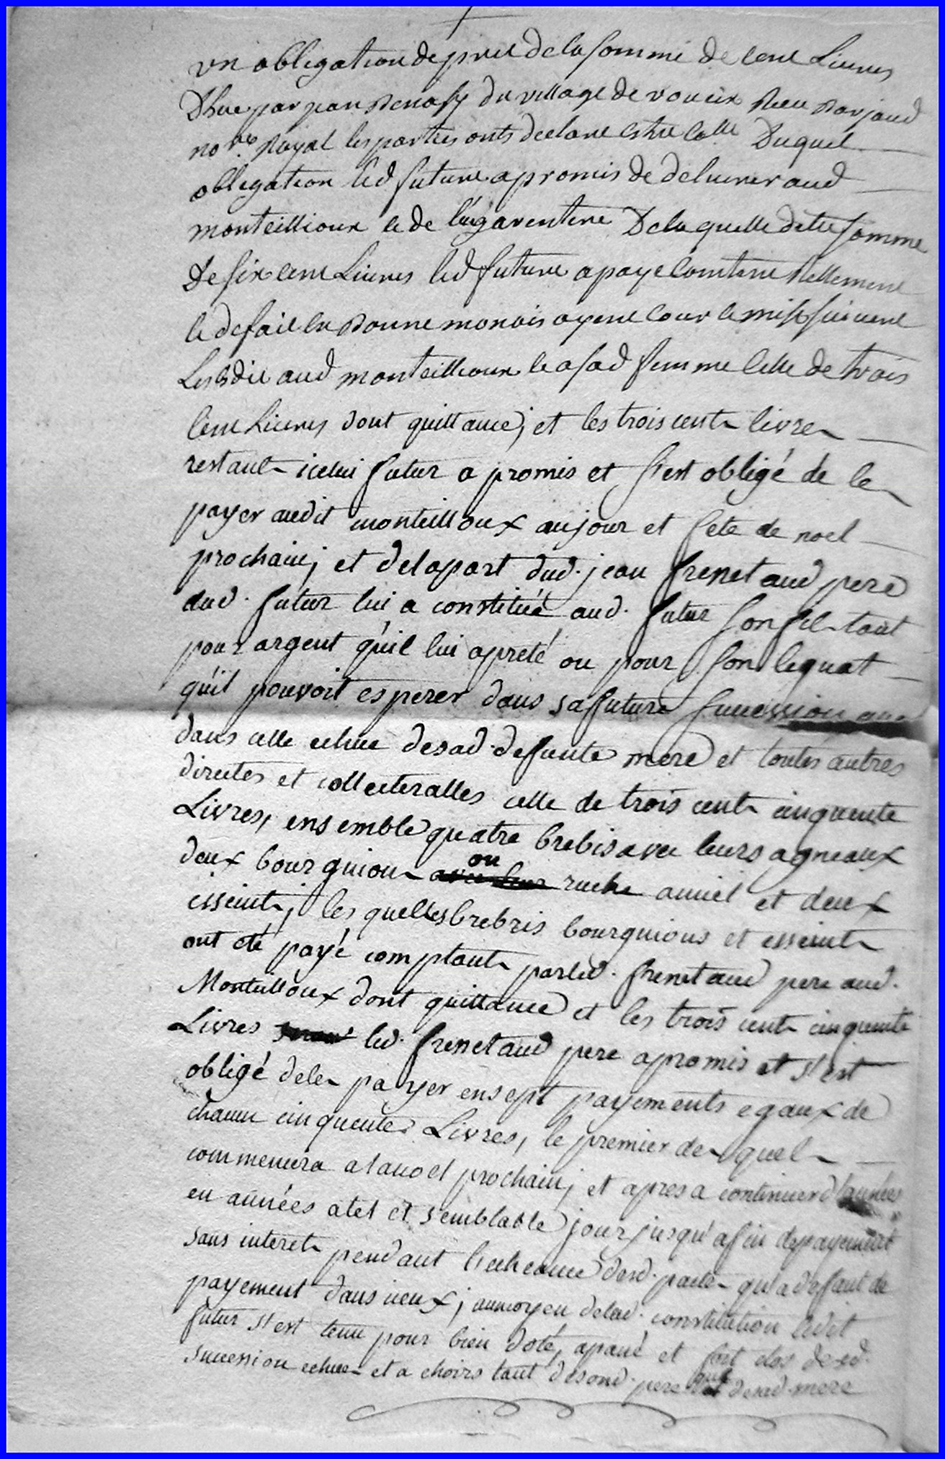 un obligation de pret de la somme de cent Livres
par jean du village de
no.re Royal les parties onts declare estre Duquel
obligation led future a promis de delivrer aud
monteillioux e de Dela quelle ditte somme
De six cent Livres led future a paye contens Rellement
e de fait en Bonne monois ayent cour
aud monteillioux e a sad femme celle de trois
cent Livres dont quittance; et les trois cents livres
restants icelui futur a promis et s'est obligé de les
payer audit monteilloux au jour et fete de noel
prochain; et de la part dud. jean frenetaud pere
dud. futur lui a constitué aud. futur son fil tout
pour argent qu'il lui a preté ou pour son lequat
qu'il pouvoit esperer dans sa future succession que
dans celle echue de sad. defunte mere et toutes autres
directes et collecteralles celle de trois cents cinquente
Livres, ensemble quatre brebis avec leurs agneaux
deux bourgnions ou ruche a miel et deux
esseints; les quelles brebris bourgnions et esseints
ont eté payé comptants par led. frenetaud pere aud.
Monteilloux dont quittance et les trois cents cinquente
Livres led. frenetaud pere a promis et s'est
obligé de les payer en sept payements egaux de
chacun cinquente Livres, le premier des quels
commencera a la noel prochain; et apres a continuer d'années
en années a tel et semblable jour jusqu'a fin de payement
sans interets pendant l'echeance desd. pactes qu'a defaut de
payement dans iceux; au moyen de lad. constitution ledit
futur s'est tenu pour bien doté, apané et fort clos desd.
succession echue et a choirs tant de sond. pere que de sad. mere